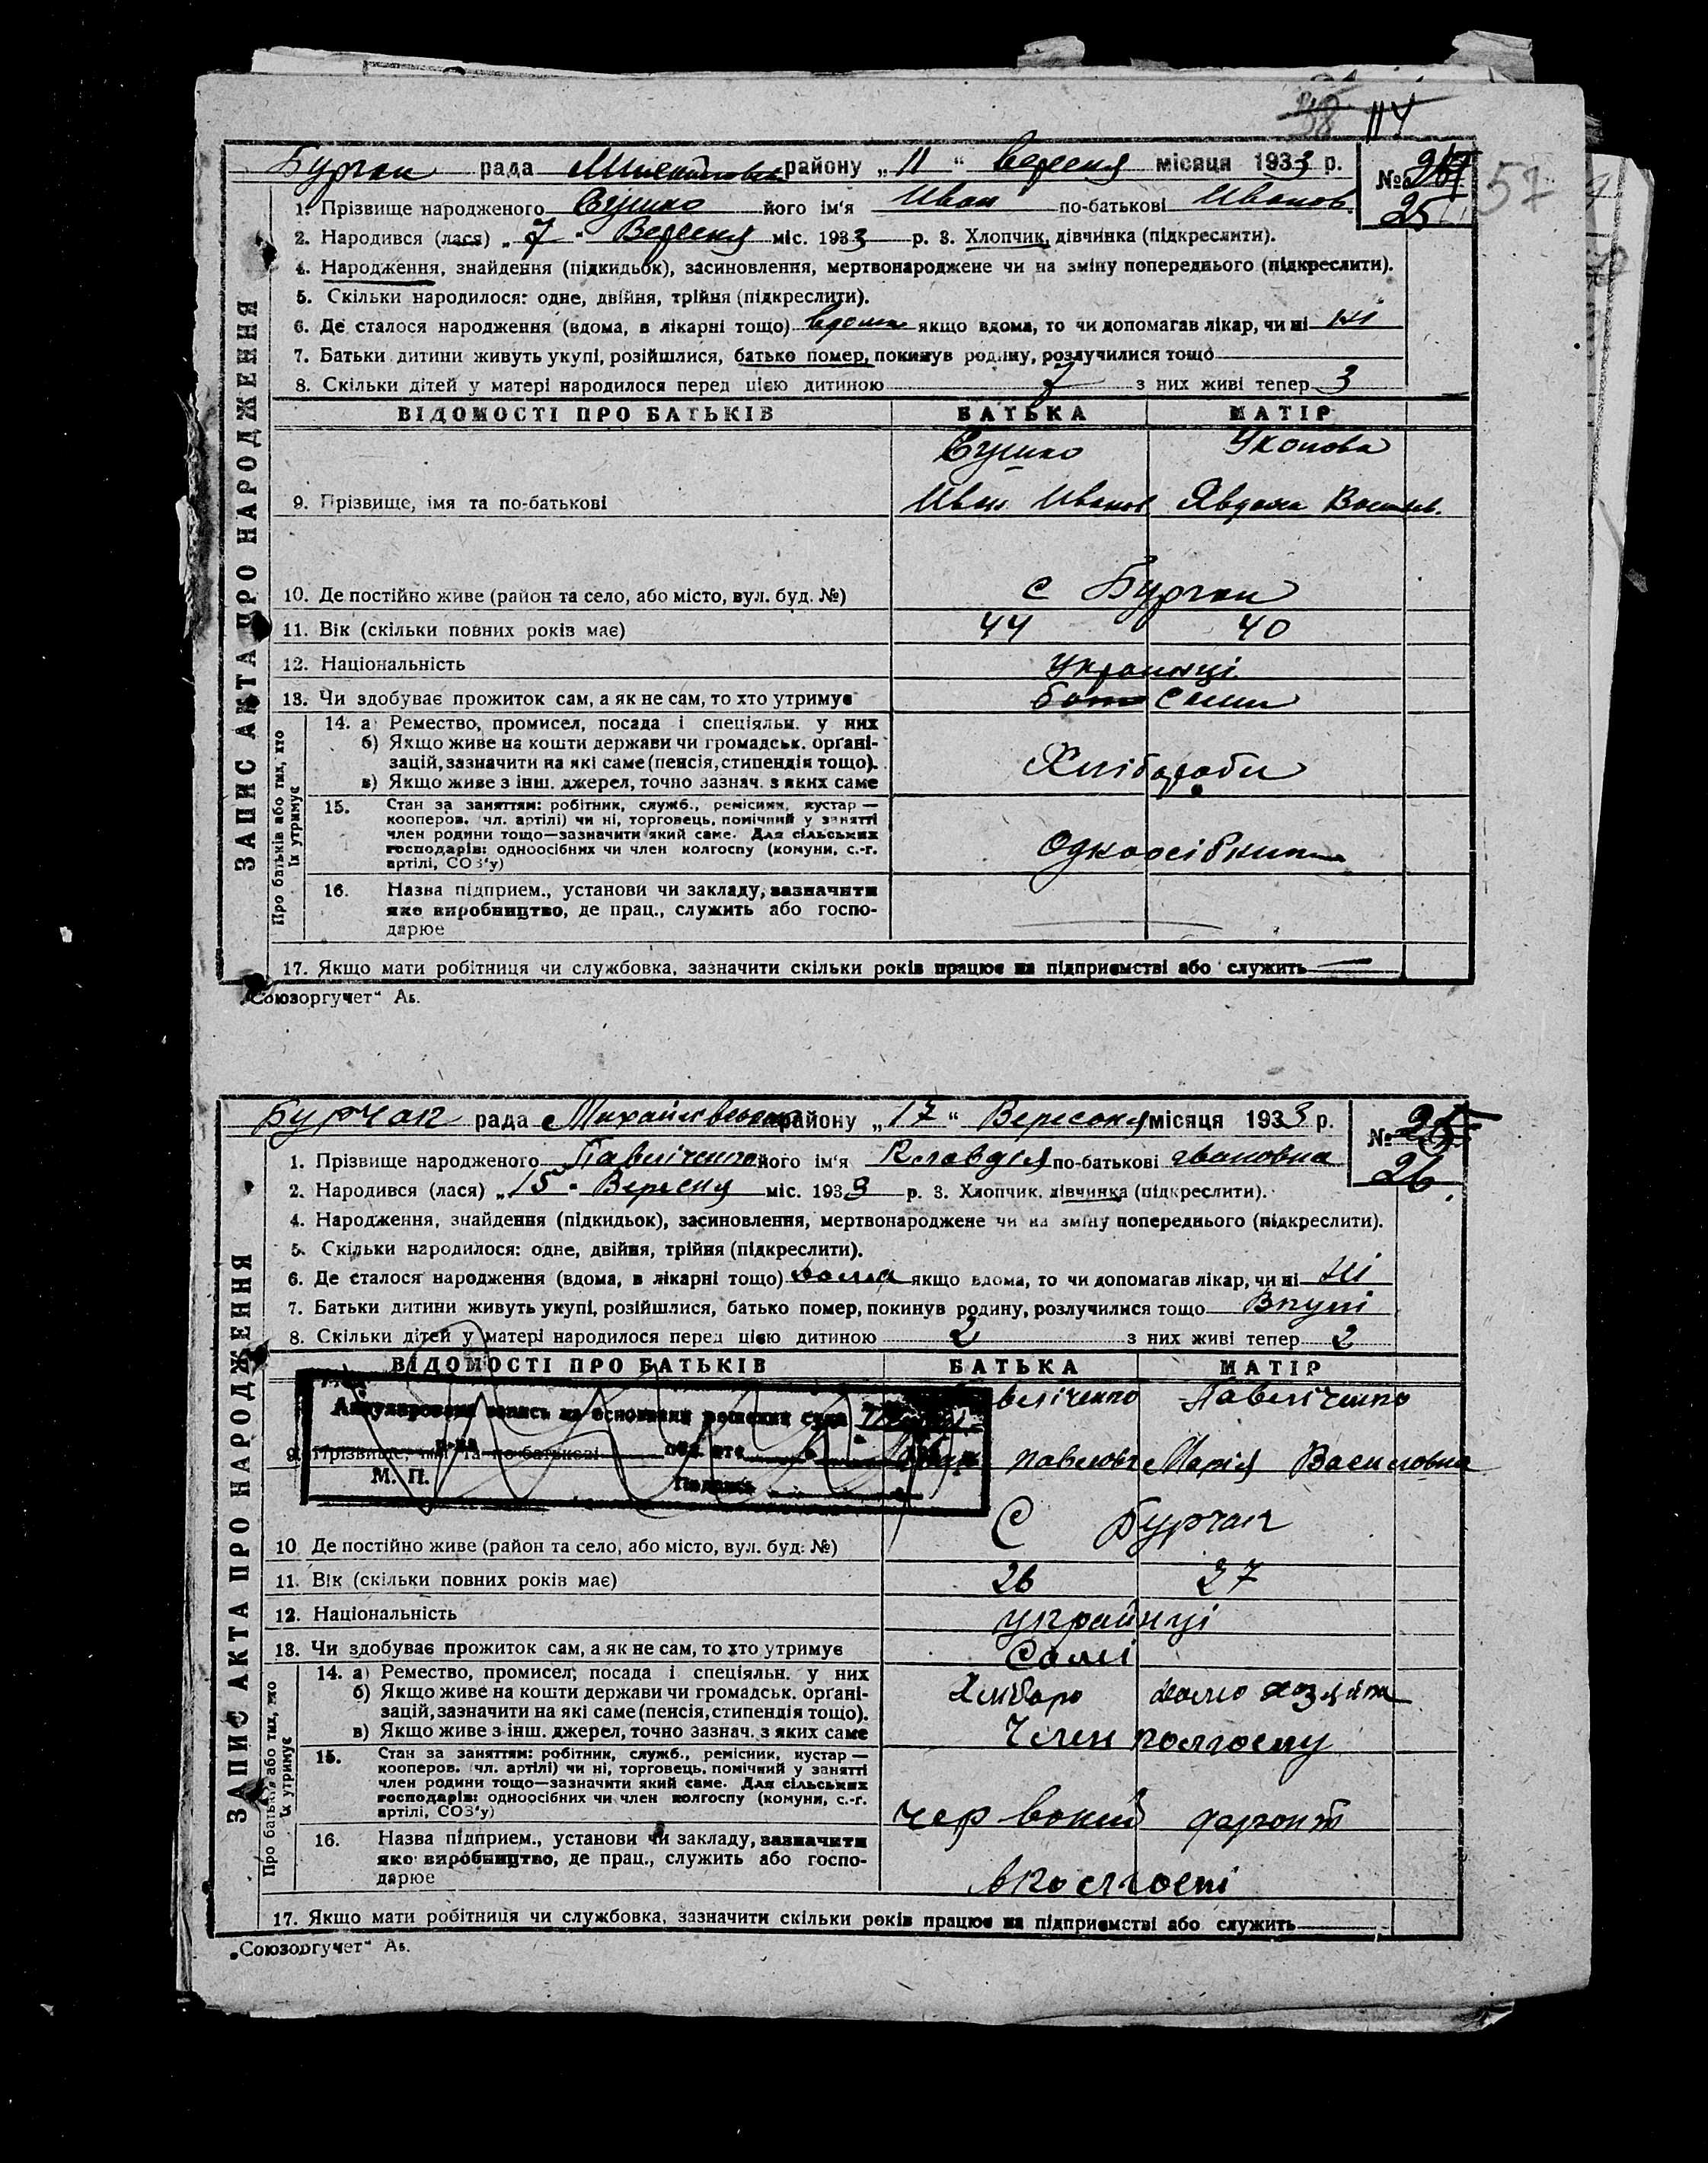 114
Бурчак рада Михайловськ району „ 11 “ Вересня місяця 1933 р.
№ 25
57
1. Прізвище народженого його ім‘я Иван по-батькові Иванов.
2. Народився (лася) „ 7 “ Вересня міс. 1933 р. 3. Хлопчик, дівчинка (підкреслити).
4. Народження, знайдення (підкидьок), засиновлення, мертвонароджене чи на зміну попереднього (підкреслити).
5. Скільки народилося: одне, двійня, трійня (підкреслити).
6. Де сталося народження (вдома, в лікарні тощо) вдома якщо вдома, то чи допомагав лікар, чи ні ні
7. Батьки дитини живуть укупі, розійшлися, батько помер, покинув родину, розлучилися тощо
8. Скільки дітей у матері народилося перед цією дитиною 7 з них живі тепер 3
ЗАПИС АКТА ПРО НАРОДЖЕННЯ
ВІДОМОСТІ ПРО БАТЬКІВ БАТЬКА МАТІР
9. Прізвище, імя та по-батькові Иван Иванов Явдоха Васильев.
10. Де постійно живе (район та село, або місто, вул. буд. №) с Бурчак
11. Вік (скільки повних років має) 44 40
12. Національність Українці
13. Чи здобуває прожиток сам, а як не сам, то хто утримує сами
Про батьків або тих, хто їх утримує
14. а) Ремество, промисел, посада і спеціяльн. у них
б) Якщо живе на кошти держави чи громадськ. органі-
зацій, зазначити на які саме (пенсія, стипендія тощо).
в) Якщо живе з інш. джерел, точно зазнач. з яких саме
Хлібороби
15. Стан за заняттям: робітник, служб., ремісник, кустар —
кооперов. (чл. артілі) чи ні, торговець, помічний у занятті
член родини тощо—зазначити який саме. Для сільських
господарів: одноосібних чи член колгоспу (комуни, с.-г.
артілі, СОЗ‘у)
Одноосібники
16. Назва підприєм., установи чи закладу, зазначити
яке виробництво, де прац., служить або госпо-
дарює
17. Якщо мати робітниця чи службовка, зазначити скільки років працює на підприємстві або служить
„Союзоргучет“ Ав.
Бурчак рада Михайлівського району „ 17 “ Вересоня місяця 1933 р.
№ 26.
1. Прізвище народженого Павліченко його ім‘я Клавдія по-батькові івановна
2. Народився (лася) „ 15 “ Вересня міс. 1933 р. 3. Хлопчик. дівчинка (підкреслити).
4. Народження, знайдення (підкидьок), засиновлення, мертвонароджене чи на зміну попереднього (підкреслити).
5. Скільки народилося: одне, двійня, трійня (підкреслити).
6. Де сталося народження (вдома, в лікарні тощо) дома якщо вдома, то чи допомагав лікар, чи ні ні
7. Батьки дитини живуть укупі, розійшлися, батько помер, покинув родину, розлучилися тощо Вкупі
8. Скільки дітей у матері народилося перед цією дитиною 2 з них живі тепер 2
ЗАПИС АКТА ПРО НАРОДЖЕННЯ
ВІДОМОСТІ ПРО БАТЬКІВ БАТЬКА МАТІР
Павліченко Павліченко
Аннулирована запись на основании решения суда
р-на
М. П.
Подпись
9. Прізвище, імя та по-батькові Іван павлович Марія Василовна
10. Де постійно живе (район та село, або місто, вул. буд. №) С Бурчак
11. Вік (скільки повних років має) 26 27
12. Національність українці
13. Чи здобуває прожиток сам, а як не сам, то хто утримує Самі
Про батьків або тих, хто їх утримує
14. а) Ремество, промисел, посада і спеціяльн. у них
б) Якщо живе на кошти держави чи громадськ. органі-
зацій, зазначити на які саме (пенсія, стипендія тощо).
в) Якщо живе з інш. джерел, точно зазнач. з яких саме
Член колгоспу
15. Стан за заняттям: робітник, служб., ремісник, кустар —
кооперов. (чл. артілі) чи ні, торговець, помічний у занятті
член родини тощо—зазначити який саме. Для сільських
господарів: одноосібних чи член колгоспу (комуни, с.-г.
артілі, СОЗ‘у)
16. Назва підприєм., установи чи закладу, зазначити
яке виробництво, де прац., служить або госпо-
дарює
в колгоспі
17. Якщо мати робітниця чи службовка, зазначити скільки років працює на підприємстві або служить
„Союзоргучет“ Ав.